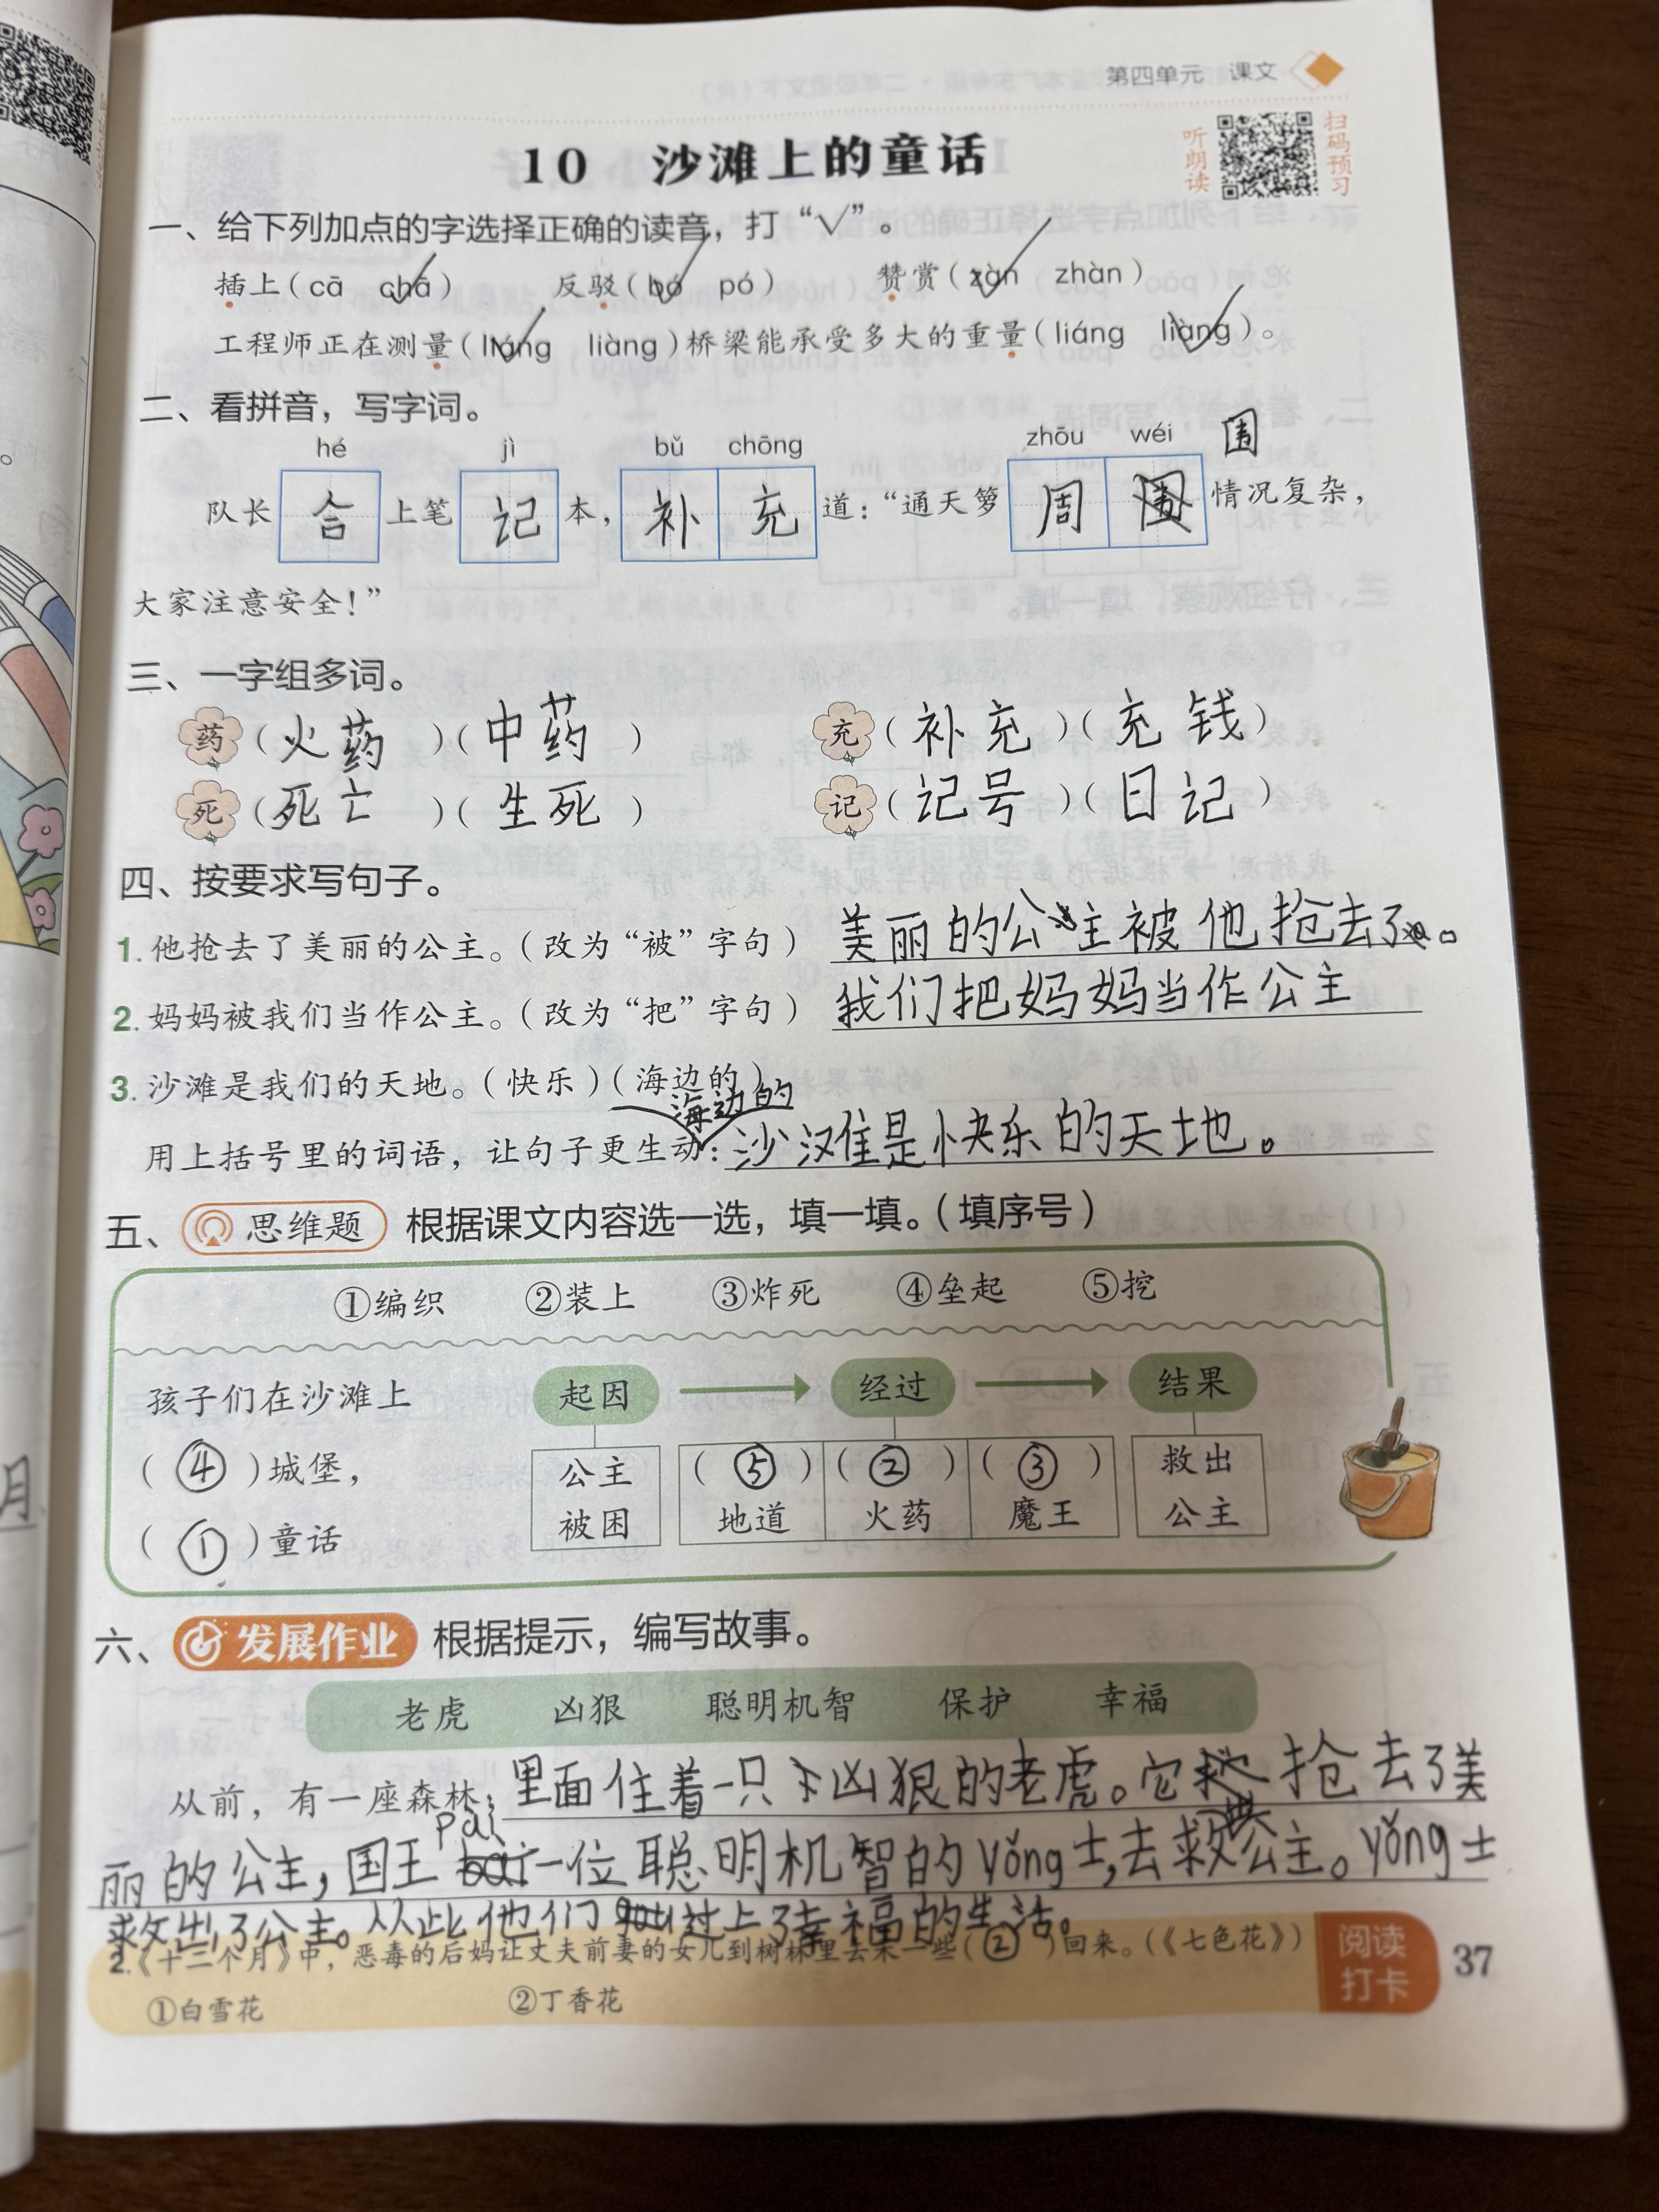 第四单元 课文
10 沙滩上的童话
听朗读
扫码预习
一、给下列加点的字选择正确的读音，打“√”。
插上(cā chā) 反驳(bó pó) 赞赏(zàn zhàn)
工程师正在测量(liáng liàng)桥梁能承受多大的重量(liáng liàng)。
二、看拼音，写字词。
hé jì bǔ chōng zhōu wéi 围
队长 合 上笔 记 本，补充 道：“通天箩 周围 情况复杂，
大家注意安全！”
三、一字组多词。
药(火药)(中药) 充(补充)(充钱)
死(死亡)(生死) 记(记号)(日记)
四、按要求写句子。
1.他抢去了美丽的公主。(改为“被”字句) 美丽的公主被他抢去了。
2.妈妈被我们当作公主。(改为“把”字句) 我们把妈妈当作公主
3.沙滩是我们的天地。(快乐)(海边的)
海边的
用上括号里的词语，让句子更生动：沙滩是快乐的天地。
五、思维题 根据课文内容选一选，填一填。(填序号)
①编织 ②装上 ③炸死 ④垒起 ⑤挖
孩子们在沙滩上 起因 经过 结果
(④)城堡， 公主 (⑤) (②) (③) 救出
(①)童话 被困 地道 火药 魔王 公主
六、发展作业 根据提示，编写故事。
老虎 凶狠 聪明机智 保护 幸福
从前，有一座森林，里面住着一只凶狠的老虎。它抢去了美
pài
丽的公主，国王一位聪明机智的yǒng士，去救公主。yǒng士
救出了公主。从此他们过上了幸福的生活。
2.《十二个月》中，恶毒的后妈让丈夫前妻的女儿到树林里去采一些(②)回来。(《七色花》)
①白雪花 ②丁香花
阅读打卡
37